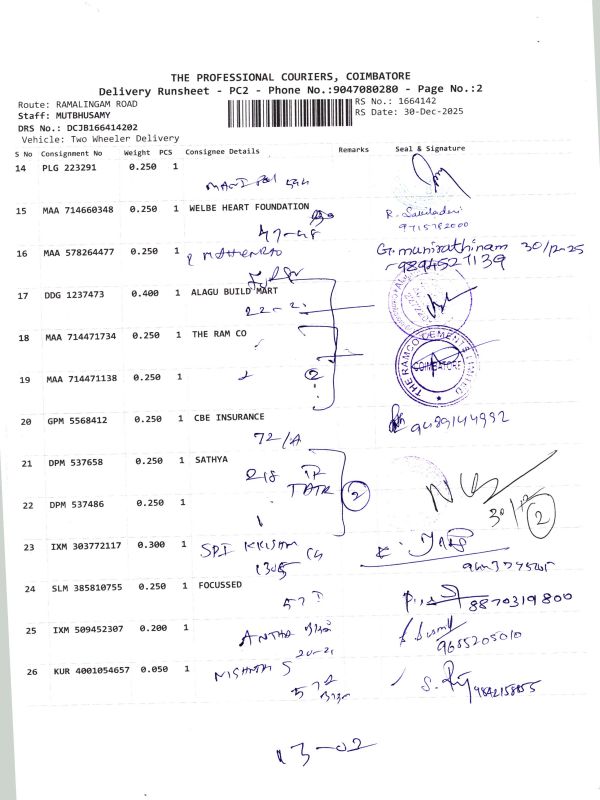 THE PROFESSIONAL COURIERS, COIMBATORE
Delivery Runsheet - PC2 - Phone No.:9047080280 - Page No.:2
Route: RAMALINGAM ROAD
Staff: MUTBHUSAMY
DRS No.: DCJB166414202
Vehicle: Two Wheeler Delivery
RS No.: 1664142
RS Date: 30-Dec-2025
S No Consignment No Weight PCS Consignee Details Remarks Seal & Signature
14 PLG 223291 0.250 1
15 MAA 714660348 0.250 1 WELBE HEART FOUNDATION
47-48
9715782000
16 MAA 578264477 0.250 1
G. munirathinam 30/12-25
9894527139
17 DDG 1237473 0.400 1 ALAGU BUILD MART
22-2
18 MAA 714471734 0.250 1 THE RAM CO
THE RAMCO CEMENTS LIMITED
COIMBATORE
19 MAA 714471138 0.250 1
2
20 GPM 5568412 0.250 1 CBE INSURANCE
72/A
9489144992
21 DPM 537658 0.250 1 SATHYA
218 TR
TATA
2
22 DPM 537486 0.250 1
30/12
2
23 IXM 303772117 0.300 1 SRI KRISHNA
1305
24 SLM 385810755 0.250 1 FOCUSSED
57
8870319800
25 IXM 509452307 0.200 1
20-21
9655205010
26 KUR 4001054657 0.050 1
NISHANTH S
57A
9842158855
13-02